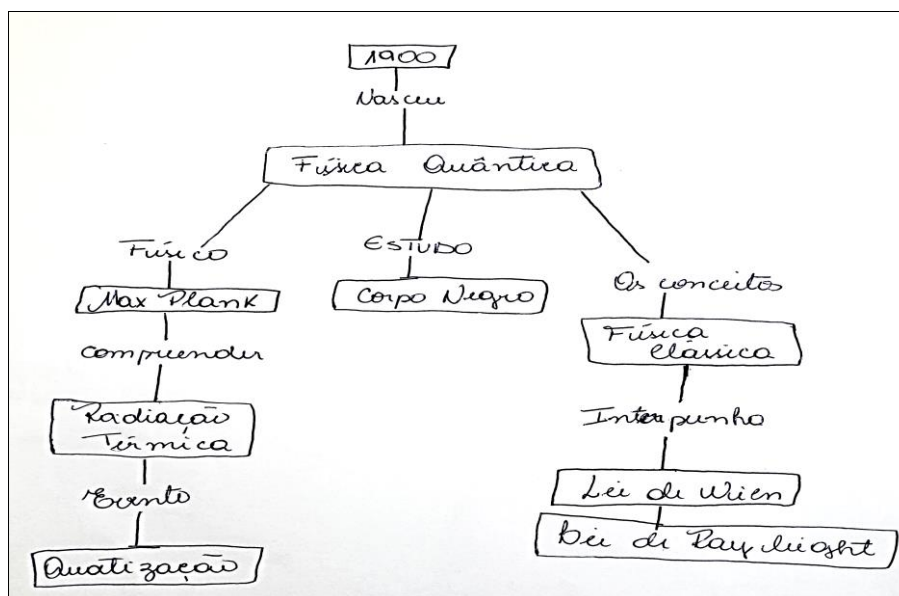 1900
Nasceu
Física Quântica
Físico
Max Plank
compreender
Radiação
Térmica
Evento
Quatização
ESTUDO
Corpo Negro
Os conceitos
Física
Clássica
Interpunha
Lei de Wien
Lei de Ray